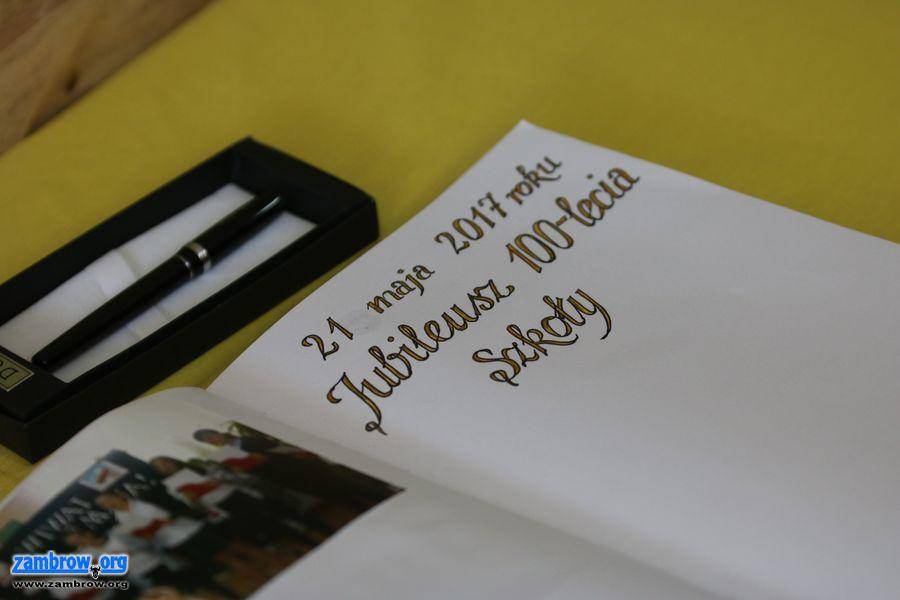 21 maja 2017 roku
Jubileusz 100-lecia
Szkoły
WIWAT
zambrow.org
www.zambrow.org